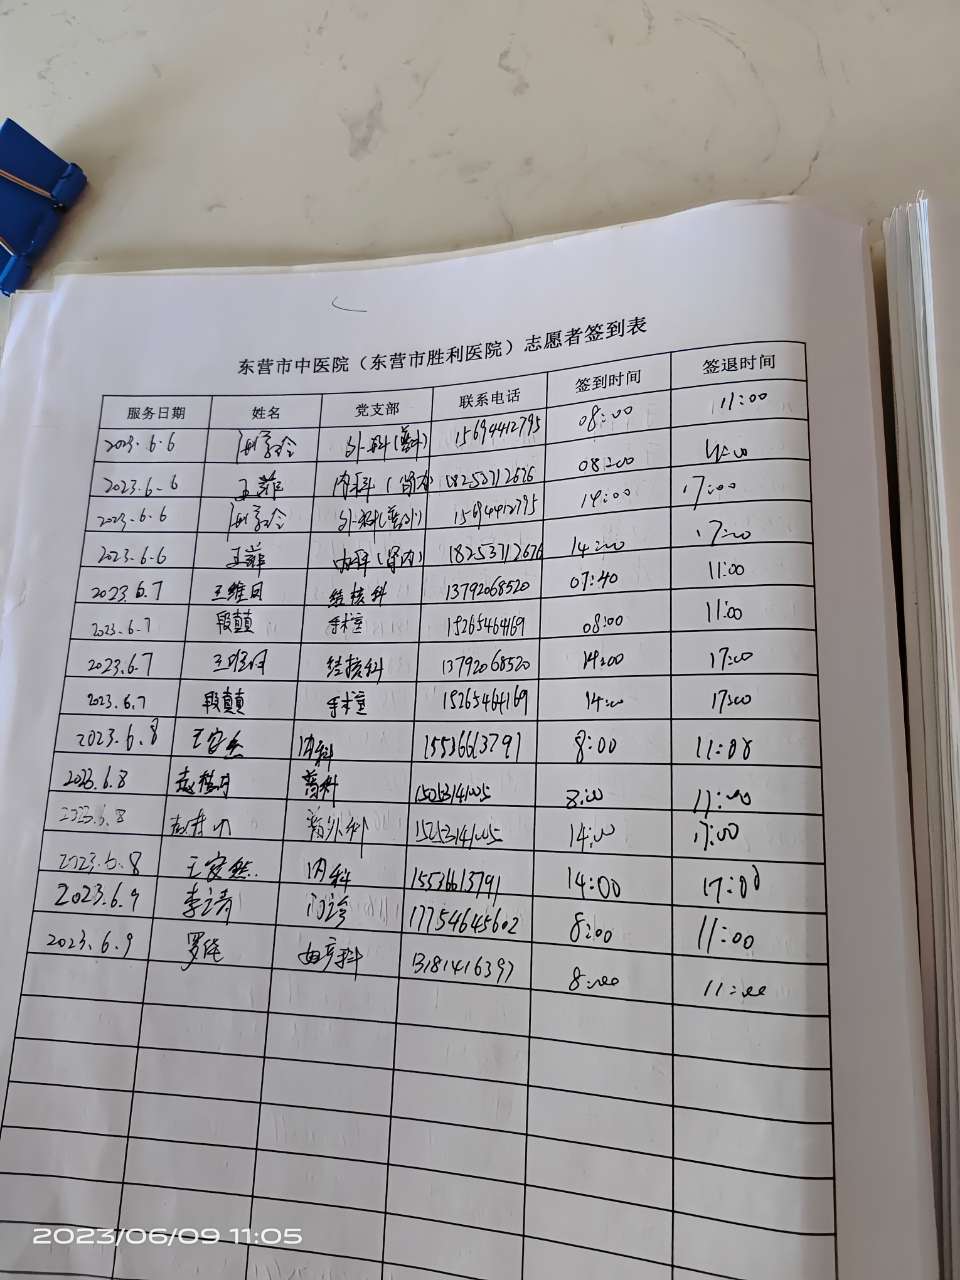 东营市中医院（东营市胜利医院）志愿者签到表
服务日期 姓名 党支部 联系电话 签到时间 签退时间
2023.6.6 外科(普外) 15694412795 08:00 11:00
2023.6.6 王菲 内科(肾内) 18253712676 08:00 11:00
2023.6.6 外科(普外) 15694412795 14:00 17:00
2023.6.6 王菲 内科(肾内) 18253712676 14:00 17:00
2023.6.7 王维国 结核科 13792068520 07:40 11:00
2023.6.7 段颠 手术室 15265464169 08:00 11:00
2023.6.7 结核科 13792068520 14:00 17:00
2023.6.7 段颠 手术室 15265464169 14:00 17:00
2023.6.8 王安然 内科 15536613791 8:00 11:00
2023.6.8 8:00 11:00
2023.6.8 普外科 15253141005 14:00 17:00
2023.6.8 王安然 内科 15536613791 14:00 17:00
2023.6.9 李文青 门诊 17754645602 8:00 11:00
2023.6.9 罗佳 妇产科 13181416397 8:00 11:00
2023/06/09 11:05